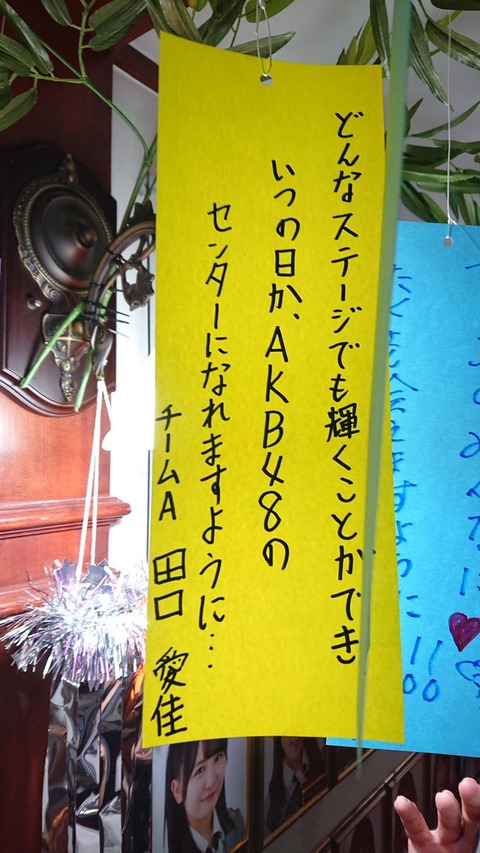 どんなステージでも輝くことができ
いつの日か、AKB48の
センターになれますように…
チームA 田口 愛佳
ますように!!